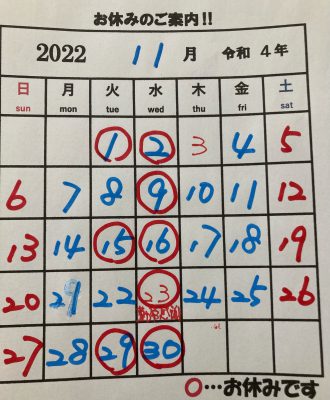 お休みのご案内!!
2022 11月 令和4年
日 月 火 水 木 金 土
sun mon tue wed thu fri sat
1 2 3 4 5
6 7 8 9 10 11 12
13 14 15 16 17 18 19
20 21 22 23 24 25 26
27 28 29 30
○…お休みです